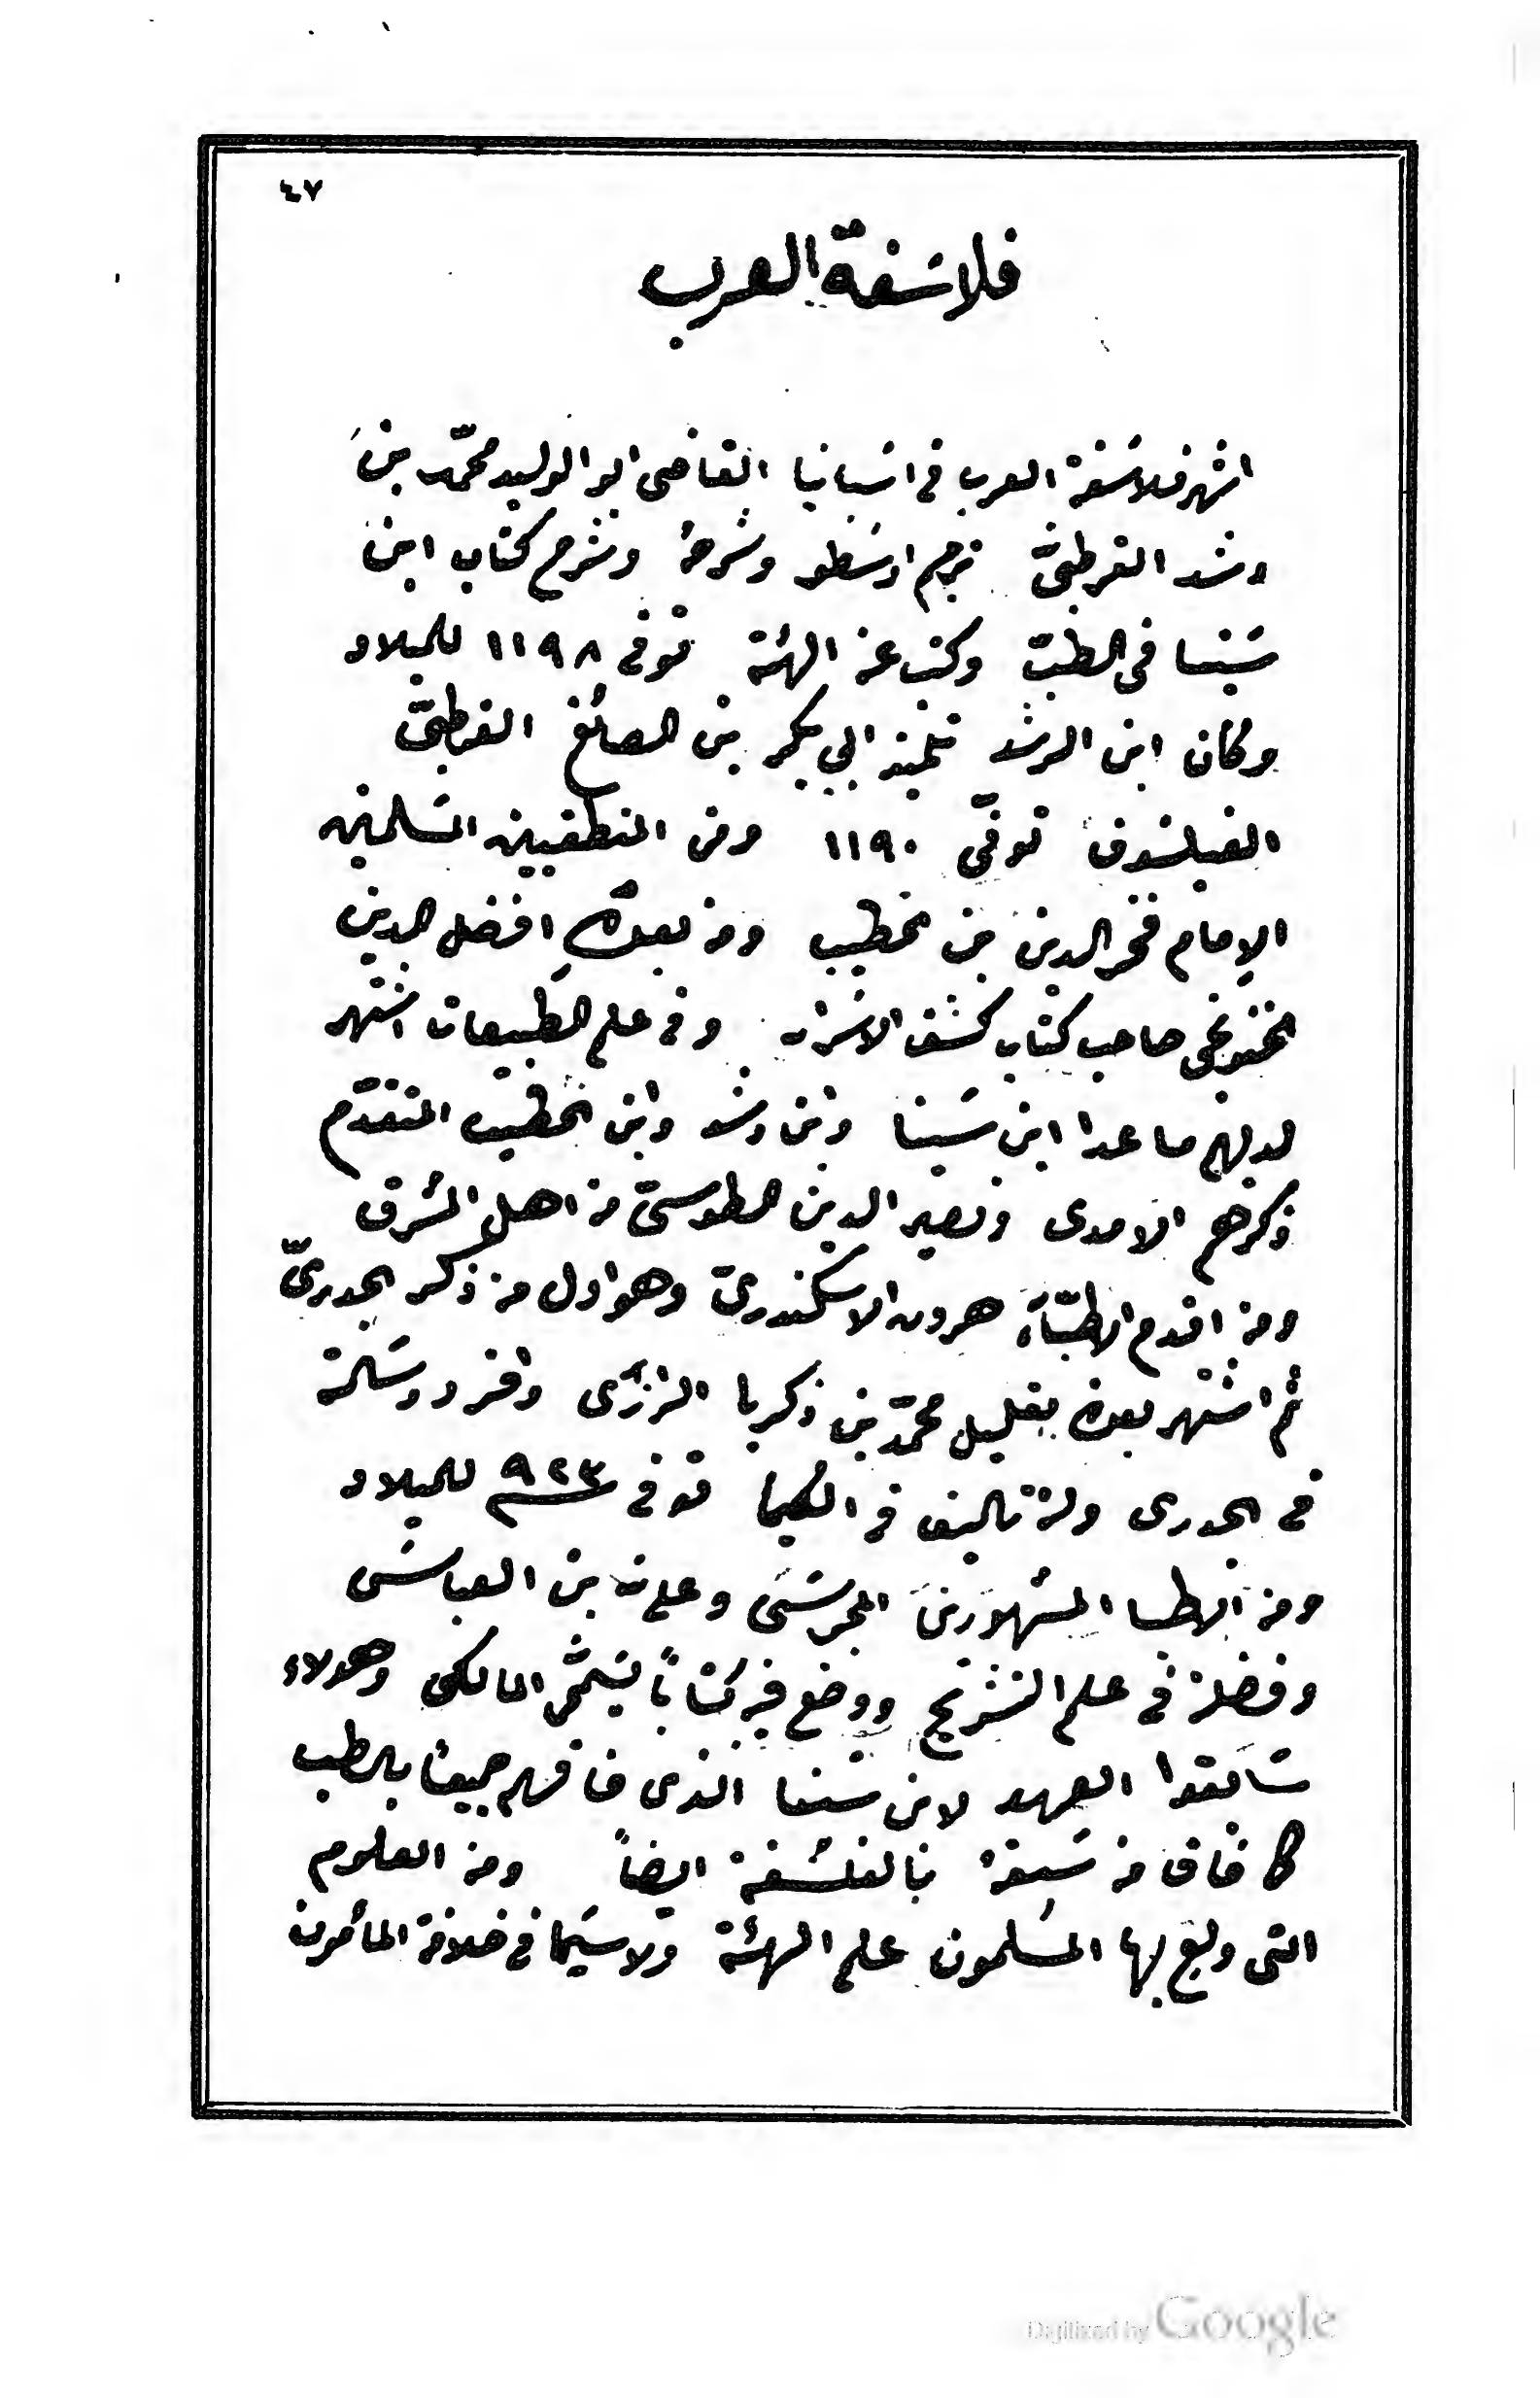 ٤٧
فلاسفة العرب
اشهر فلاسفة العرب فى اسبانيا القاضى ابو الوليد محمّد بن
رشد القرطبىّ ترجم ارسطو وشرحهُ وشرح كتاب ابن
سينا فى الطبّ وكتب عن الهئة توفى ١١٩٨ للميلاد
وكان ابن الرشد تلميذ ابي بكر بن الصائغ القرطبىّ
الفيلسوف توفّى ١١٩٠ ومن المنطقيين المسلمين
الإمام فخر الدين بن خطيب ومن بعدهُ افضل الدين
الخنونجى صاحب كتاب كشف الاسرار وفى علم الطبيعات اشتهر
لديهم ماعدا ابن سينا وابن رشد وابن الخطيب المتقدّم
ذكرهم الامدى ونصير الدين الطوسىّ من اهل المشرق
ومن اقدم الاطبّاء هرون الاسكندرىّ وهو اول من ذكر الجدرىّ
ثم اشتهر بعدهُ بقليل محمّد بن زكريا الرازى وافرد رسالة
فى الجدرى ولهُ تاليف فى الكيميا توفى ٩٢٣ للميلاد
ومن الاطبا المشهورين المجوسى وعلى بن العباس
وفضلهُ فى علم التشريح ووضع فيه كتاباً يسمّى المالكى وهولاء
سابقوا العهد لابن سينا الذى فاقهم جميعاً بالطب
كما فاق من سبقهُ بالفلسفة ايضاً ومن العلوم
التى ولع بها المسلمون علم الهئة ولا سيّما فى خلافة المأمون
Digitized by Google